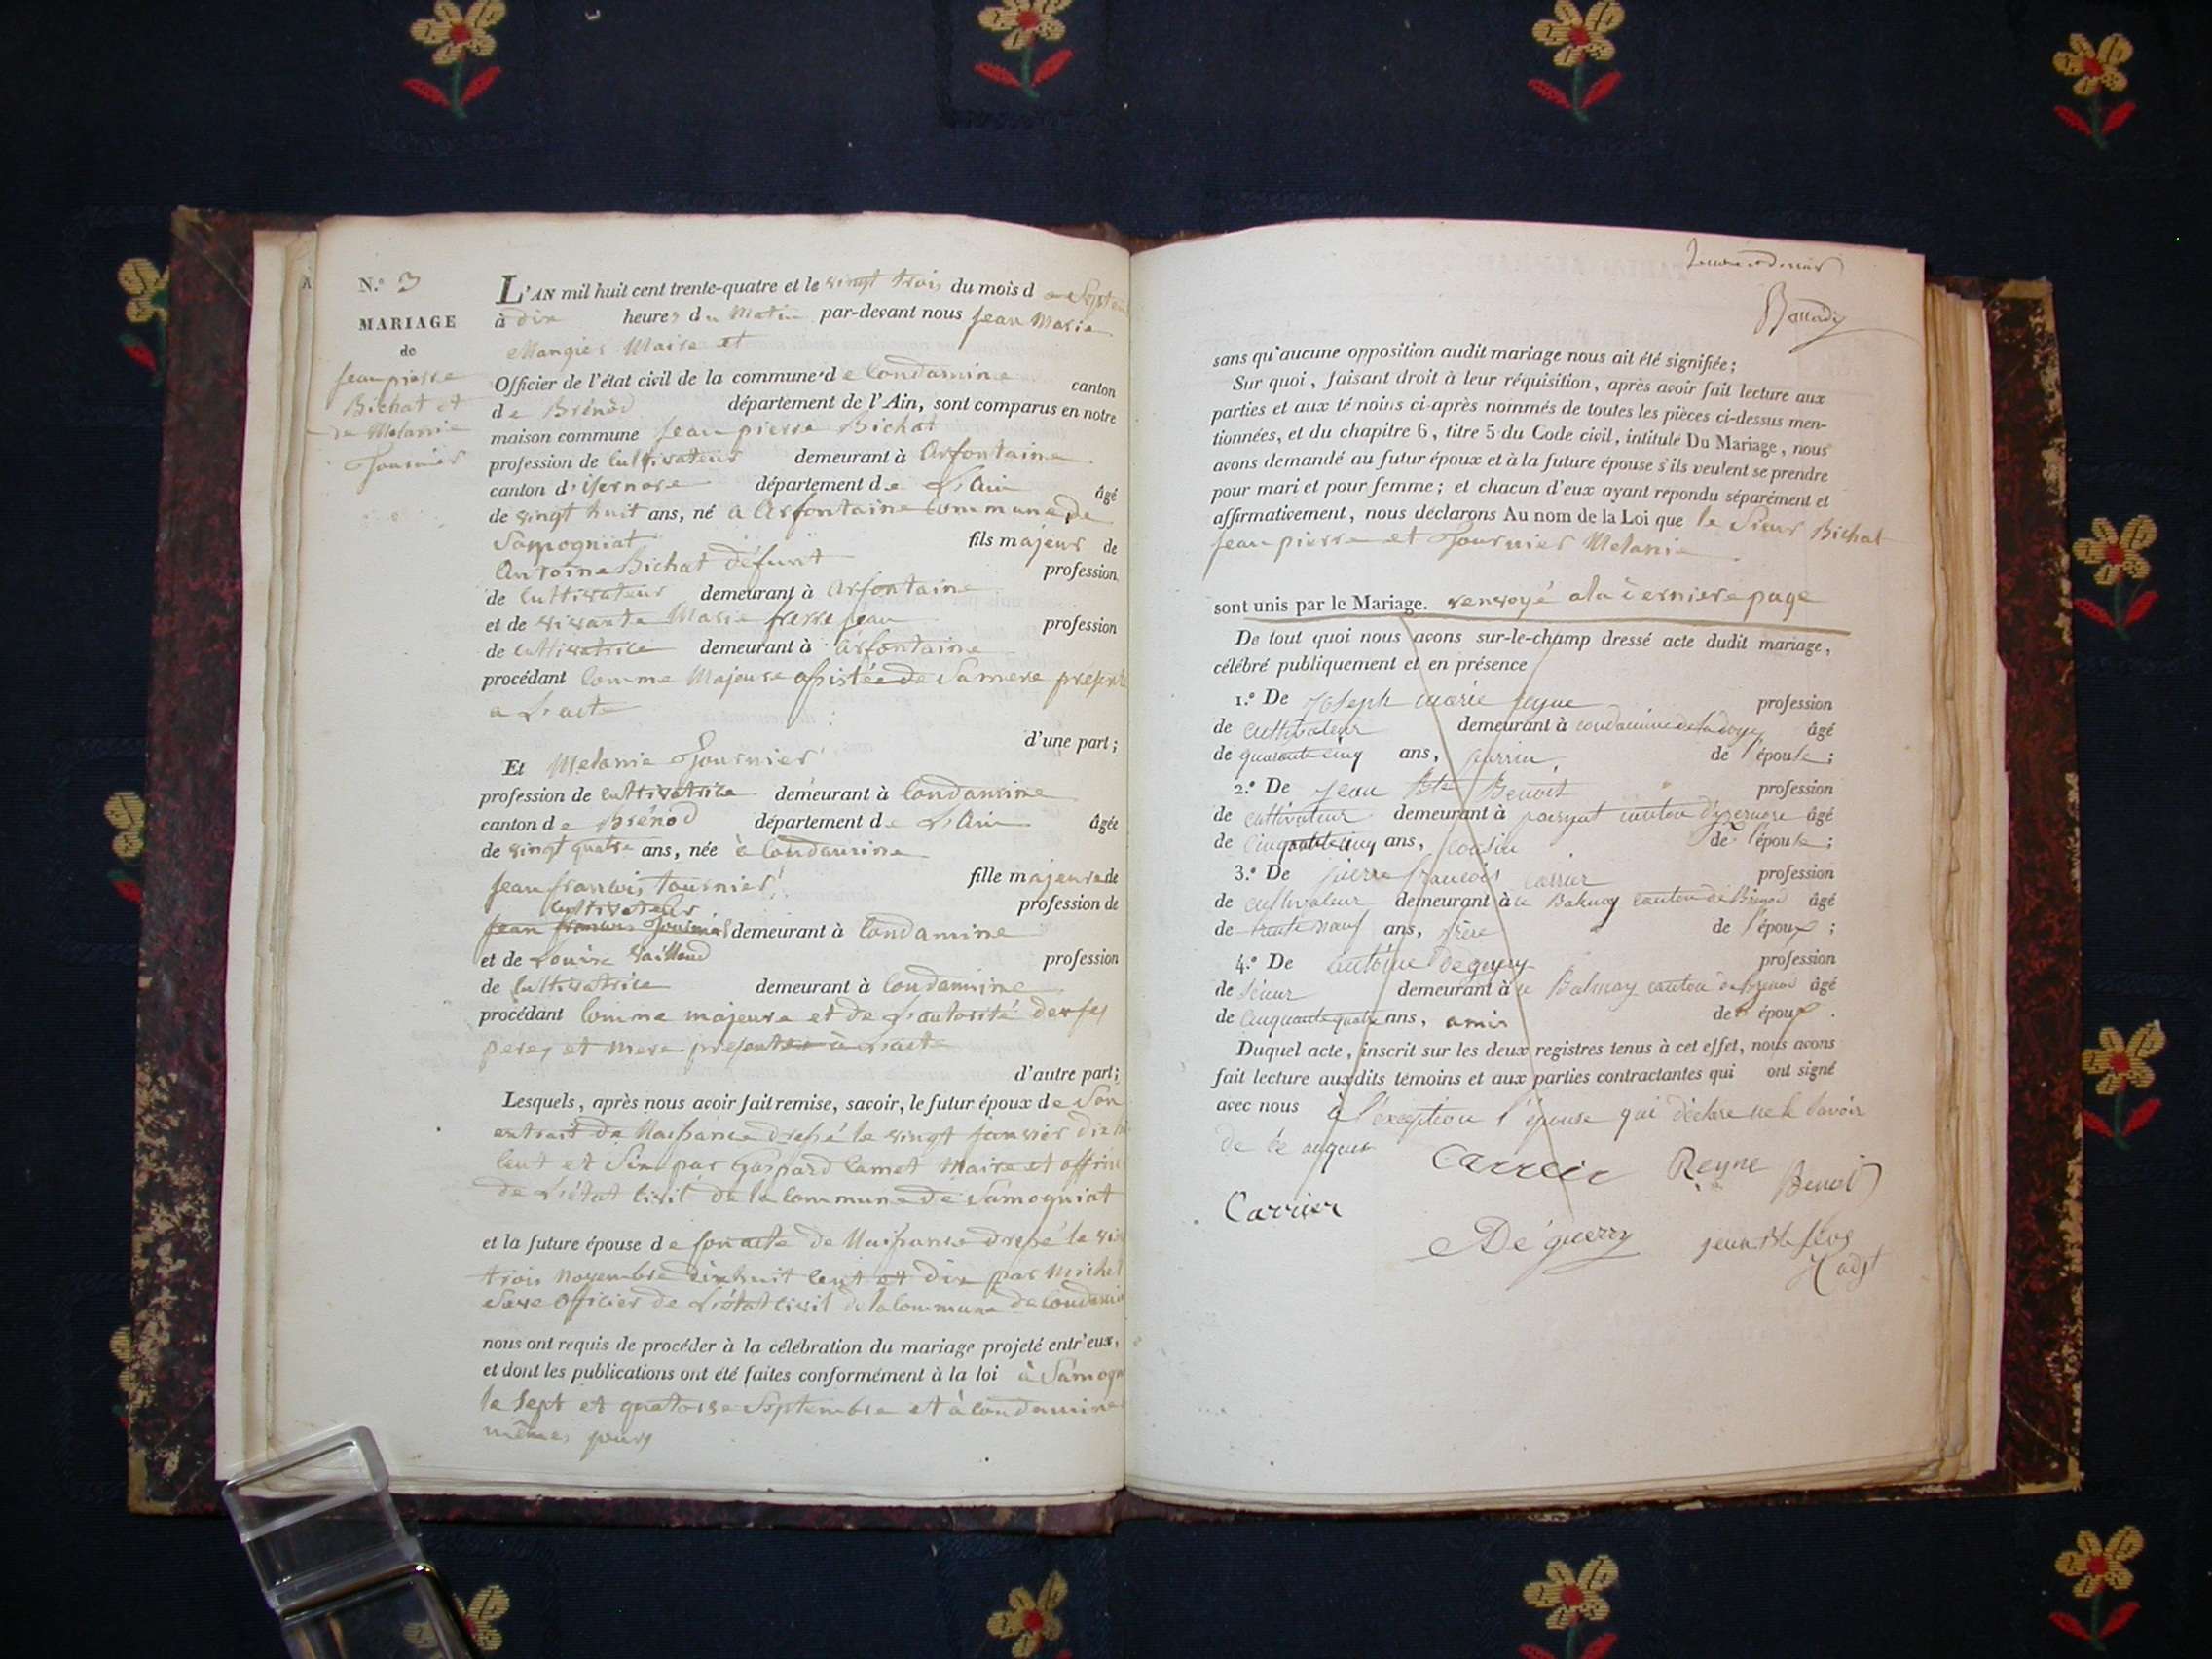 N.º 3
MARIAGE
de
jean pierre
Bichat et
de Melanie
Tournier
L'AN mil huit cent trente-quatre et le vingt trois du mois de Septem
à dix heures du Matin par-devant nous jean Marie
Mangier Maire et
Officier de l'état civil de la commune de Condamine canton
de Brénod département de l'Ain, sont comparus en notre
maison commune jean pierre Bichat
profession de Cultivateur demeurant à Arfontaine
canton d'isernore département de L'Ain âgé
de vingt huit ans, né a Arfontaine Commune de
Samogniat fils majeur de
Antoine Bichat défunt profession
de Cultivateur demeurant à Arfontaine
et de vivante Marie jean profession
de cultivatrice demeurant à arfontaine
procédant Comme Majeur assistée de Sa mere présente
a L'acte
d'une part;
Et Melanie Tournier
profession de cultivatrice demeurant à Condamine
canton de Brénod département de L'Ain âgée
de vingt quatre ans, née à Condamine
fille majeure de
jean francois tournier profession de
Cultivateur
jean francois Tournier demeurant à Condamine
et de Louise Vailloud profession
de Cultivatrice demeurant à Condamine
procédant Comme majeure et de L'autorité de ses
perey et mere présents à L'acte
d'autre part;
Lesquels, après nous avoir fait remise, savoir, le futur époux de Son
extrait de Naissance dressé le vingt janvier dix hu
Cent et Six par Gaspard Camet Maire et officie
de L'état Civil de la Commune de Samogniat
et la future épouse de son acte de Naissance dressé le vin
trois Novembre dixhuit Cent et dix par Michel
officier de L'état civil de la Commune de Condamin
nous ont requis de procéder à la célébration du mariage projeté entr'eux,
et dont les publications ont été faites conformément à la loi à Samogn
le Sept et quatorse Septembre et à Condamine
mêmes jours
sans qu'aucune opposition audit mariage nous ait été signifiée;
Sur quoi, faisant droit à leur réquisition, après avoir fait lecture aux
parties et aux témoins ci-après nommés de toutes les pièces ci-dessus men-
tionnées, et du chapitre 6, titre 5 du Code civil, intitulé Du Mariage, nous
avons demandé au futur époux et à la future épouse s'ils veulent se prendre
pour mari et pour femme; et chacun d'eux ayant répondu séparément et
affirmativement, nous déclarons Au nom de la Loi que le Sieur Bichat
jean pierre et Tournier Melanie
sont unis par le Mariage. renvoyé a la derniere page
De tout quoi nous avons sur-le-champ dressé acte dudit mariage,
célébré publiquement et en présence
1.º De Joseph marie reyne profession
de cultivateur demeurant à condamine de la doye âgé
de quarante cinq ans, parrin de l'épouse;
2.º De Jean Bte Benoit profession
de cultivateur demeurant à canton d'yzernore âgé
de cinquante cinq ans, cousin de l'épouse;
3.º De pierre francois carrier profession
de cultivateur demeurant à canton de Brenod âgé
de trente neuf ans, frère de l'époux;
4.º De antoine deguery profession
de demeurant à Balmay canton de Brenod âgé
de cinquante quatre ans, amis de époux.
Duquel acte, inscrit sur les deux registres tenus à cet effet, nous avons
fait lecture auxdits témoins et aux parties contractantes qui ont signé
avec nous à l'exception l'épouse qui déclare ne le savoir
de ce
Carrier Reyne Benoit
Carrier
Déguerry